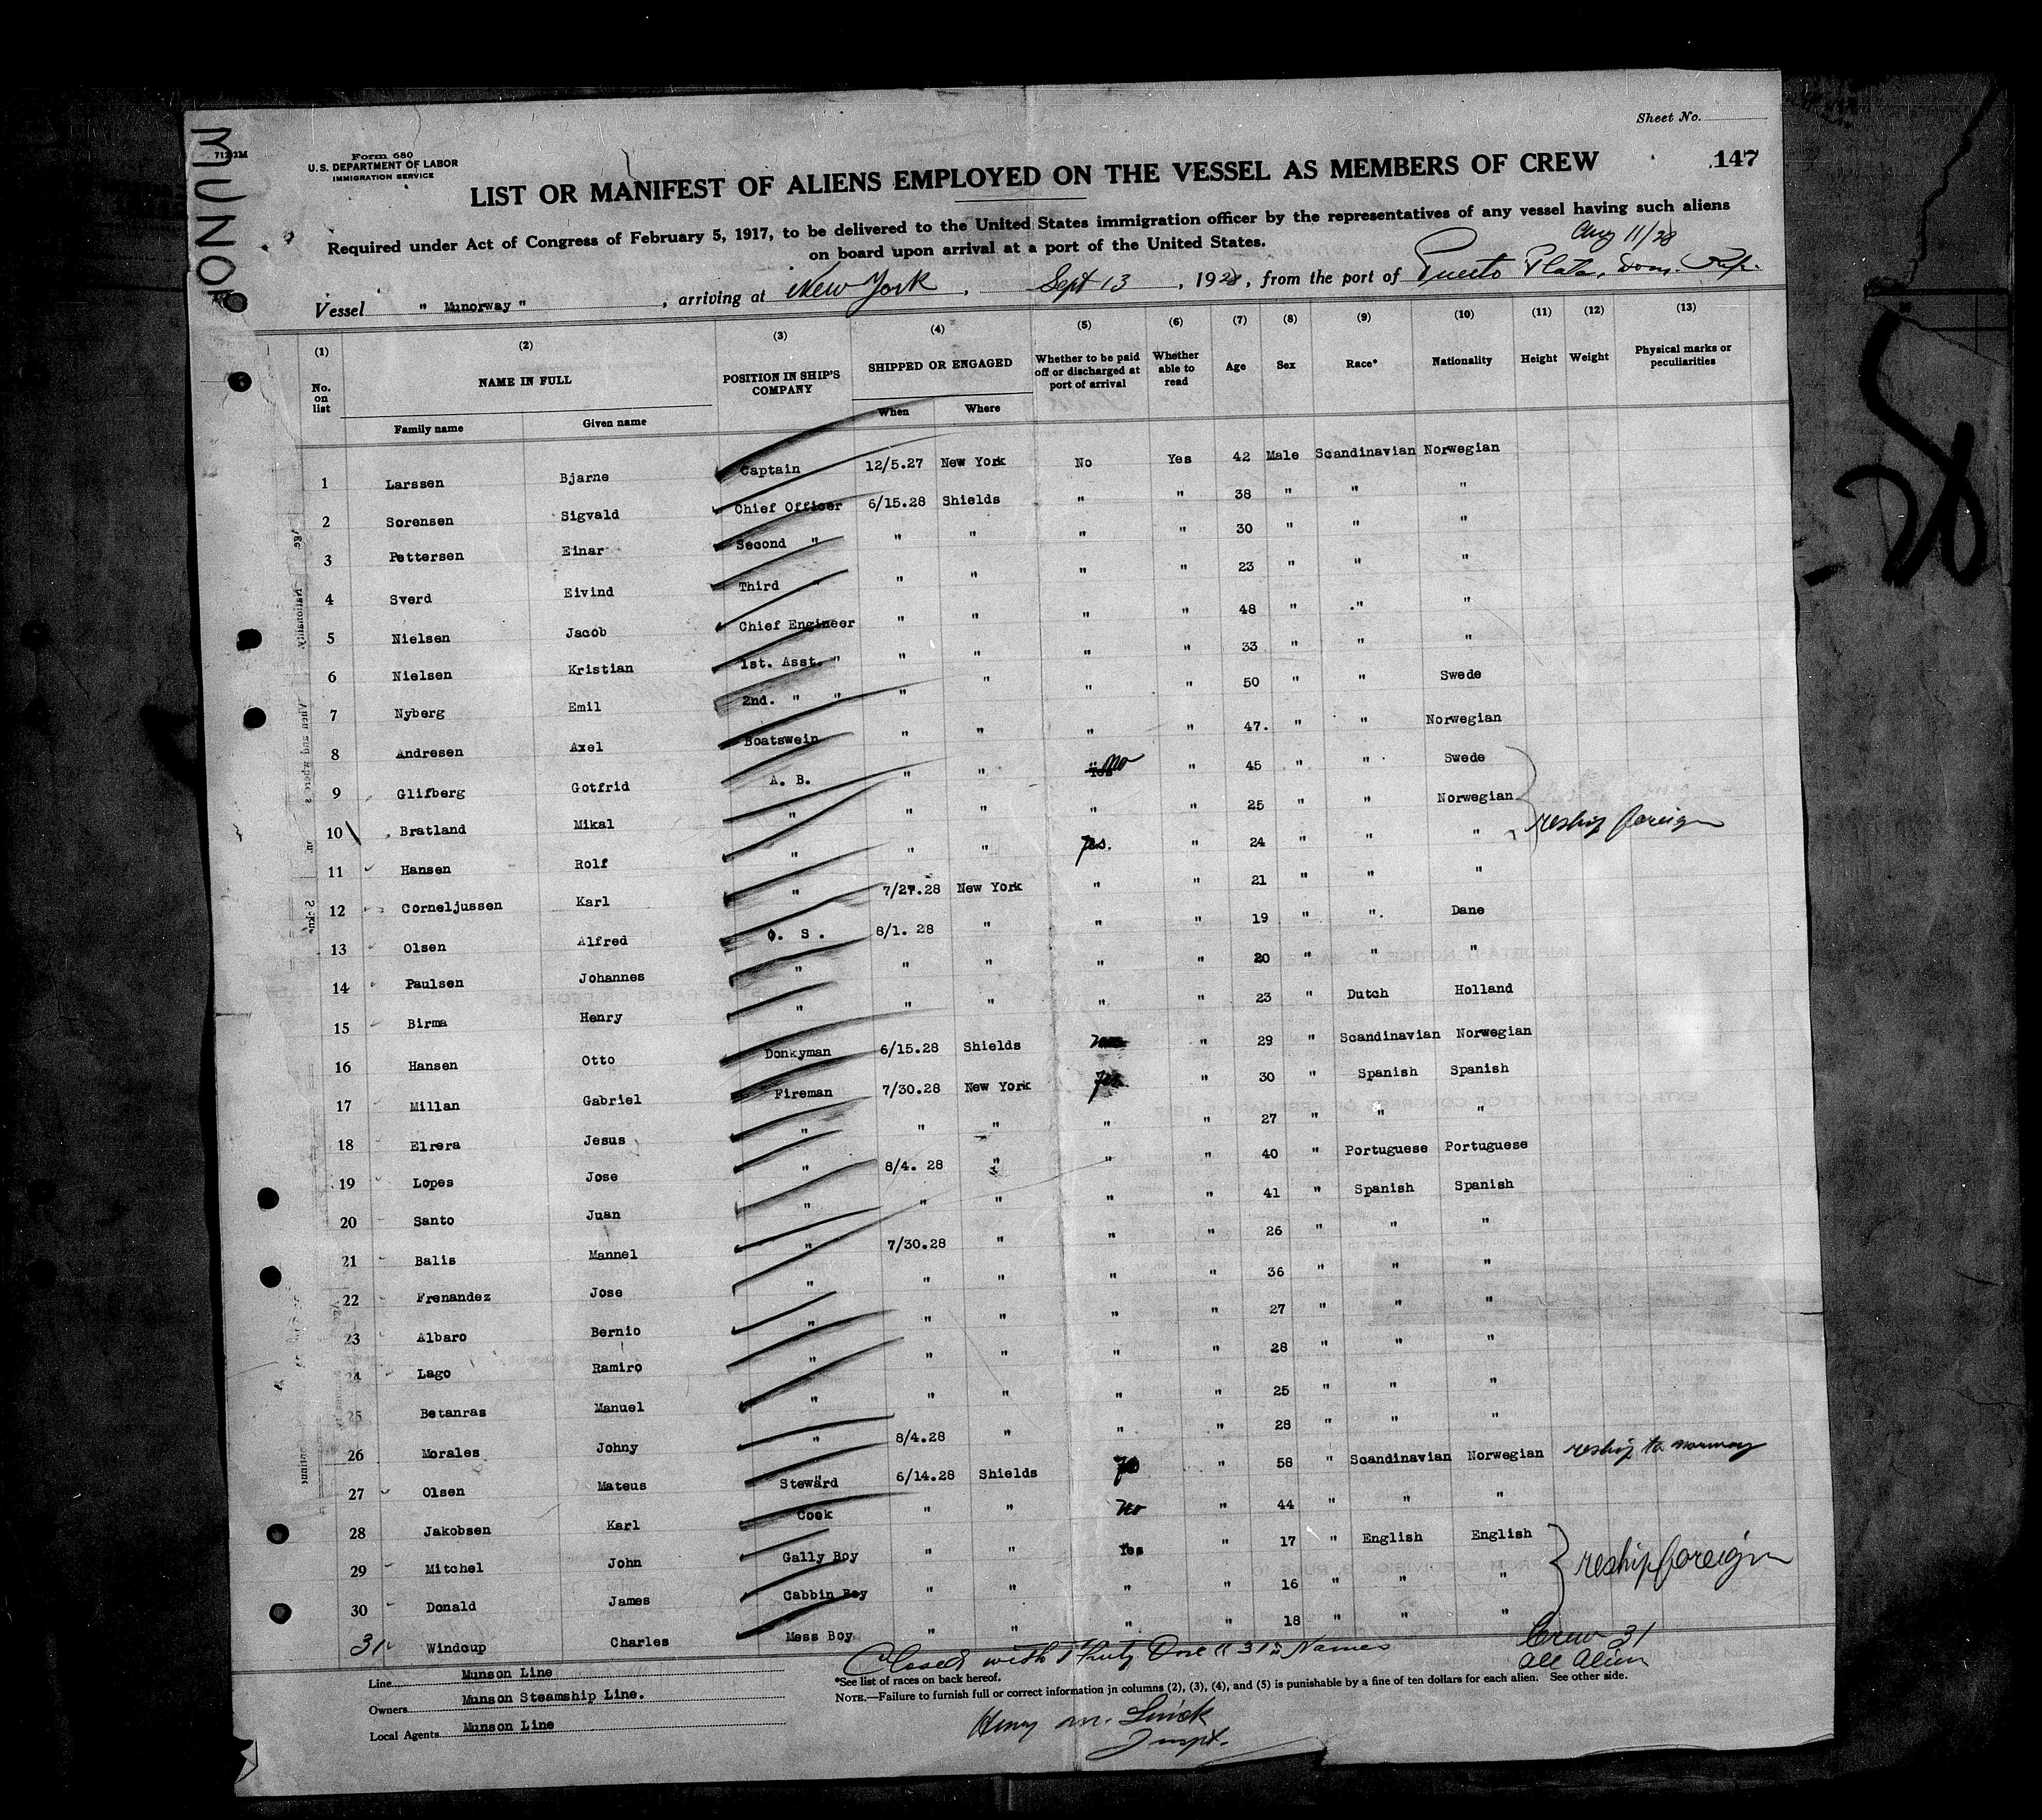 MUNOR
Sheet No.
712 2M
Form 680
U.S. DEPARTMENT OF LABOR
IMMIGRATION SERVICE
147
LIST OR MANIFEST OF ALIENS EMPLOYED ON THE VESSEL AS MEMBERS OF CREW
Required under Act of Congress of February 5, 1917, to be delivered to the United States immigration officer by the representatives of any vessel having such aliens
on board upon arrival at a port of the United States.
Aug 11/28
Vessel " Munorway " , arriving at New York , Sept 13 , 1928, from the port of Puerto Plata, Dom. Rep.
(1) (2) (3) (4) (5) (6) (7) (8) (9) (10) (11) (12) (13)
No. on list NAME IN FULL POSITION IN SHIP'S COMPANY SHIPPED OR ENGAGED Whether to be paid off or discharged at port of arrival Whether able to read Age Sex Race* Nationality Height Weight Physical marks or peculiarities
Family name Given name When Where
1 Larssen Bjarne Captain 12/5.27 New York No Yes 42 Male Scandinavian Norwegian
2 Sorensen Sigvald Chief Officer 6/15.28 Shields " " 38 " " "
3 Pettersen Einar Second " " " " " 30 " " "
4 Sverd Eivind Third " " " " " 23 " " "
5 Nielsen Jacob Chief Engineer " " " " 48 " " "
6 Nielsen Kristian 1st. Asst. " " " " " 33 " " "
7 Nyberg Emil 2nd. " " " " " " 50 " " Swede
8 Andresen Axel Boatswein " " " " 47. " " Norwegian
9 Glifberg Gotfrid A. B. " " No " 45 " " Swede
10 Bratland Mikal " " " " " 25 " " Norwegian reship foreign
11 Hansen Rolf " " " yes. " 24 " " "
12 Corneljussen Karl " 7/27.28 New York " " 21 " " "
13 Olsen Alfred O. S. 8/1. 28 " " " 19 " " Dane
14 Paulsen Johannes " " " " " 20 " " "
15 Birma Henry " " " " " 23 " Dutch Holland
16 Hansen Otto Donkyman 6/15.28 Shields " 29 " Scandinavian Norwegian
17 Millan Gabriel Fireman 7/30.28 New York yes " 30 " Spanish Spanish
18 Elrera Jesus " " " " " 27 " " "
19 Lopes Jose " 8/4. 28 " " " 40 " Portuguese Portuguese
20 Santo Juan " " " " " 41 " Spanish Spanish
21 Balis Mannel " 7/30.28 " " " 26 " " "
22 Frenandez Jose " " " " " 36 " " "
23 Albaro Bernio " " " " " 27 " " "
24 Lago Ramiro " " " " " 28 " " "
25 Betanras Manuel " " " " " 25 " " "
26 Morales Johny " 8/4.28 " " " 28 " " "
27 Olsen Mateus Steward 6/14.28 Shields yes " 58 " Scandinavian Norwegian reship to norway
28 Jakobsen Karl Cook " " no " 44 " " "
29 Mitchel John Gally Boy " " Yes " 17 " English English
30 Donald James Cabbin Boy " " " " 16 " " " reship foreign
31 Windoup Charles Mess Boy " " " " 18 " " "
Closed with Thirty One "31" Names
Crew 31
all alien
Line Munson Line
Owners Munson Steamship Line.
Local Agents Munson Line
*See list of races on back hereof.
NOTE.—Failure to furnish full or correct information in columns (2), (3), (4), and (5) is punishable by a fine of ten dollars for each alien. See other side.
Henry M.
Inspt.